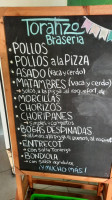 Toranzo
Brasería
POLLOS
POLLOS a la PIZZA
ASADO (vaca y cerdo)
MATAMBRES (vaca y cerdo)
a la pizza al roquefort
MORCILLAS
CHORIZOS
CHORIPANES
BOGAS DESPINADAS
ENTRECOT
con salsa
BONDIOLA
¡¡ MUCHO MÁS !!